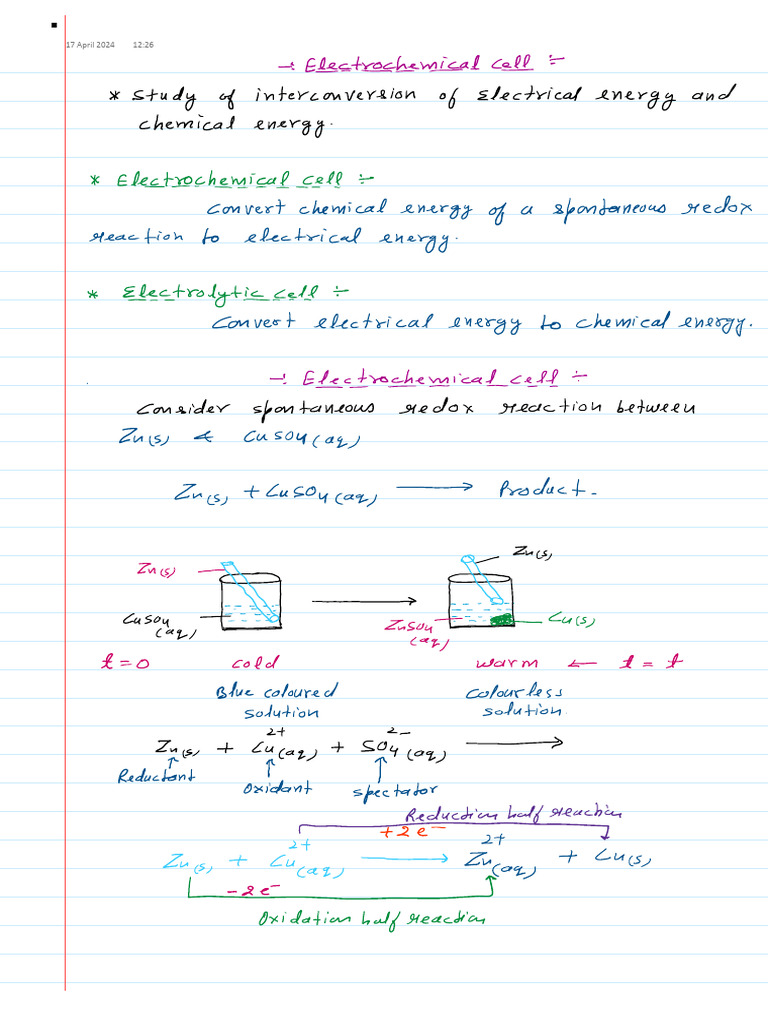 17 April 2024 12:26
→: Electrochemical cell ÷
* Study of interconversion of electrical energy and
chemical energy.
* Electrochemical cell ÷
Convert chemical energy of a spontaneous redox
reaction to electrical energy.
* Electrolytic cell ÷
Convert electrical energy to chemical energy.
→: Electrochemical cell ÷
Consider spontaneous redox reaction between
Zn(s) & CuSO4(aq)
Zn(s) + CuSO4(aq) ⟶ Product.
Zn(s) Zn(s)
CuSO4(aq) ⟶ ZnSO4(aq) Cu(s)
t=0 cold warm ← t=t
Blue coloured colourless
solution solution.
Zn(s) + Cu²⁺(aq) + SO4²⁻(aq) ⟶
Reductant oxidant spectator
Reduction half reaction
+2e⁻
Zn(s) + Cu²⁺(aq) ⟶ Zn²⁺(aq) + Cu(s)
-2e⁻
Oxidation half reaction